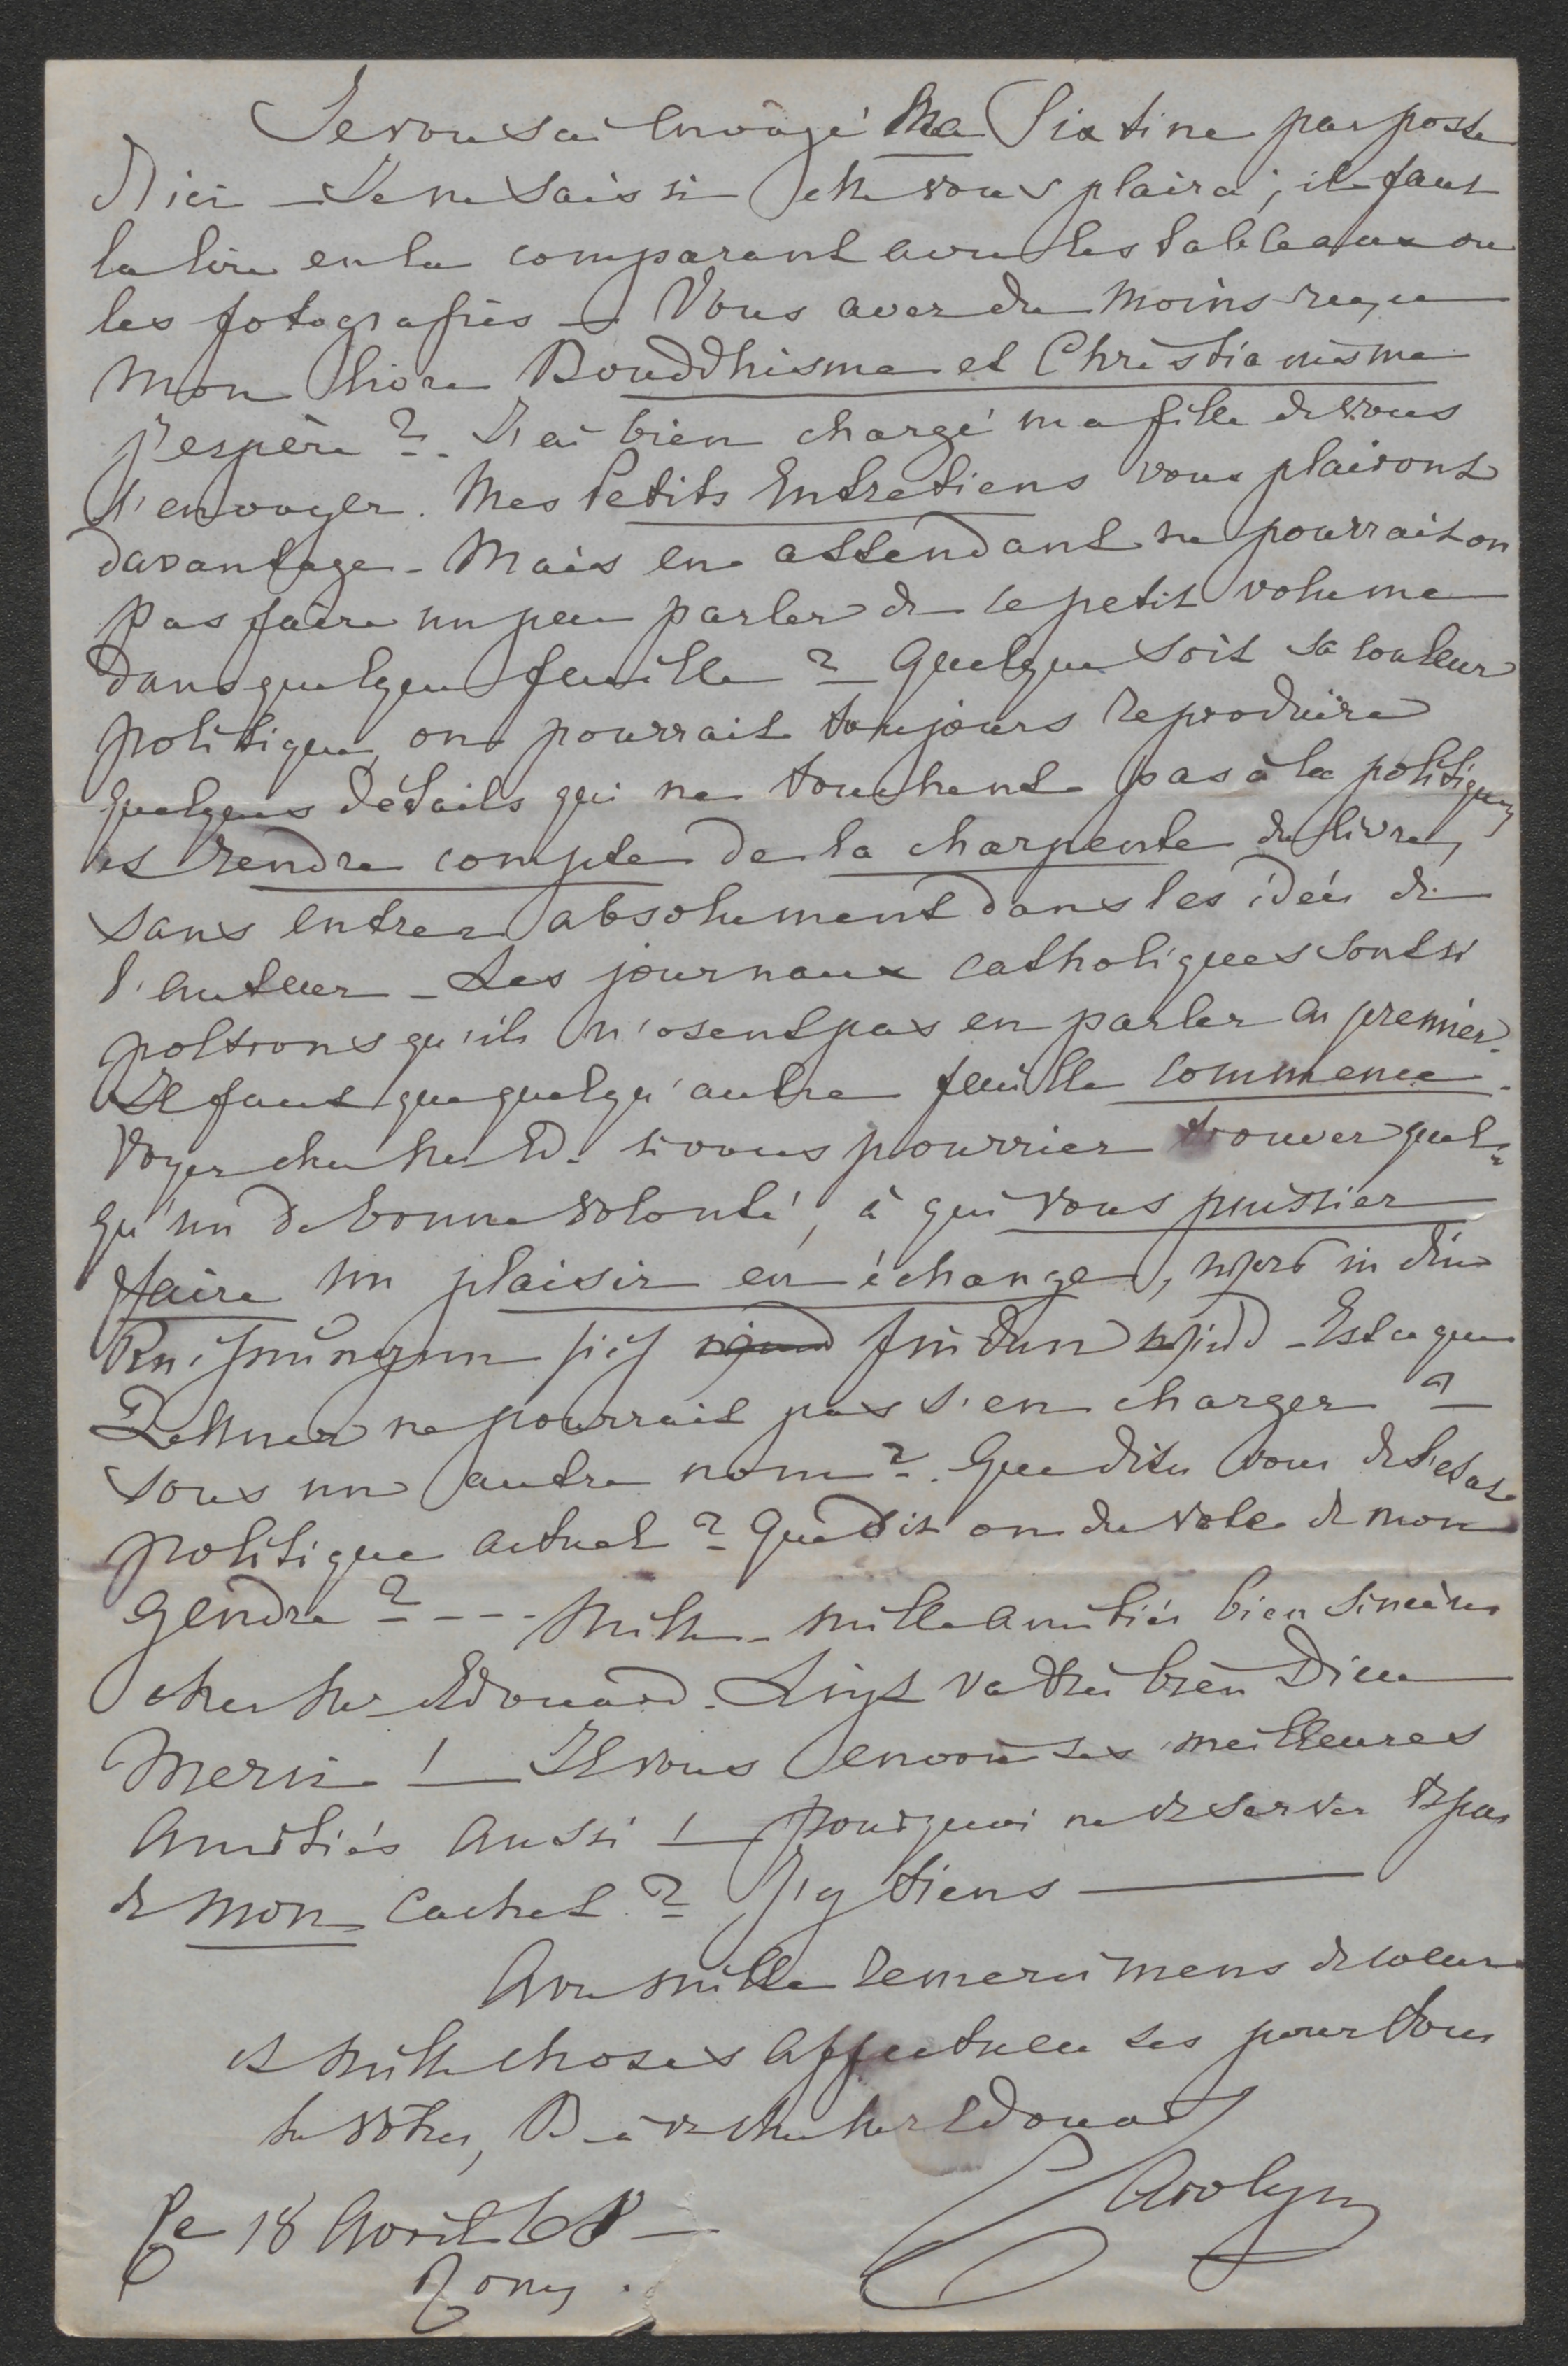 Je vous ai envoyé Ma Sixtine par poste
d'ici — Je ne sais si elle vous plaira ; il faut
la lire en la comparant avec les tableaux ou
les fotografies — Vous avez du moins reçu
mon livre Bouddhisme et Christianisme
j'espère ? J'ai bien chargé ma fille de vous
l'envoyer. Mes Petits Entretiens vous plairont
davantage — Mais en attendant ne pourrait on
pas faire un peu parler de ce petit volume
dans quelque feuille ? Quelque soit sa couleur
politique, on pourrait toujours reproduire
quelques détails qui ne touchent pas à la politique,
et rendre compte de la charpente du livre,
sans entrer absolument dans les idées de
l'auteur — Les journaux catholiques sont si
poltrons qu'ils n'osent pas en parler en premier.
Il faut que quelqu'autre feuille commence.
Voyez cher Ed. si vous pourriez trouver quel=
qu'un de bonne volonté, à qui vous puissiez
faire un plaisir en échange, was in die
Rechnungen sich finden wird — Est ce que
ne pourrait pas s'en charger ?
sous un autre nom ? Que dites vous de l'etat
politique actuel ? Que dit on du vote de mon
gendre ? - - - Mille — mille amitiés bien sincères
cher Edouard. Liszt va très bien Dieu
Merci ! — Il vous envoie ses meilleures
amitiés aussi ! — Pourquoi ne vous servez vs pas
de mon cachet ? J'y tiens —
Avec mille remercimens de coeur
et mille choses affectueuses pour tous
les vôtres, B. à vs cher Edouard
Carolyne
Ce 18 Avril 68 —
Rome.